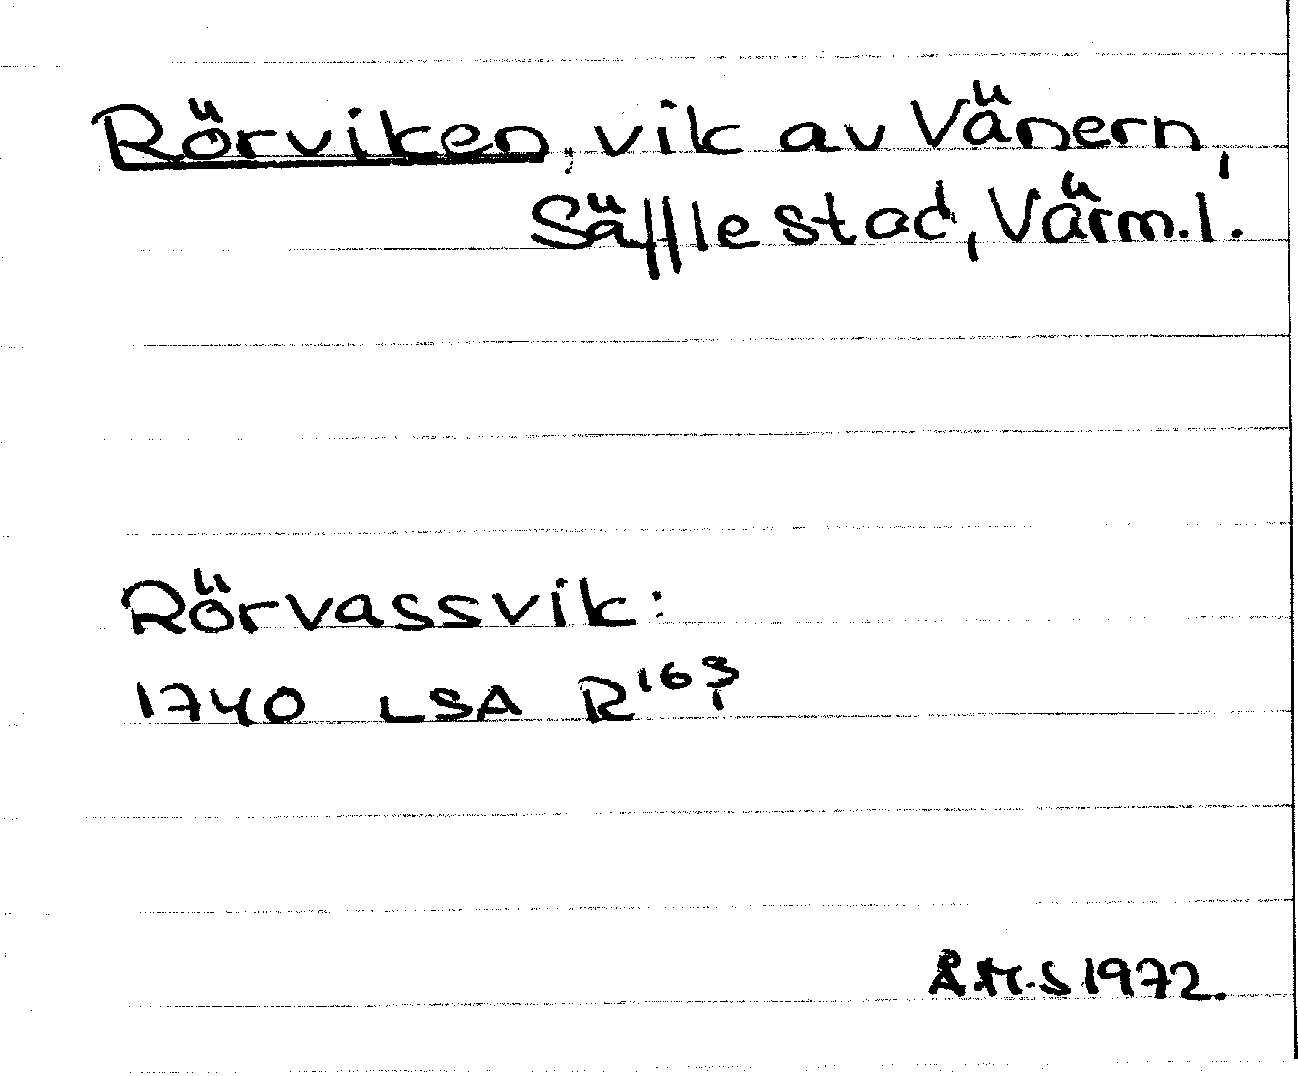 Rörviken, vik av Vänern,
Säffle stad, Värm.l.
Rörvassvik:
1740 LSA R 163
1972.